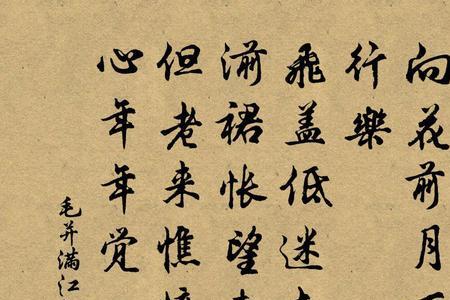 向花前月
行樂
飛盖低迷
湔裙怅望
但老来憔
心年年觉
毛并满江